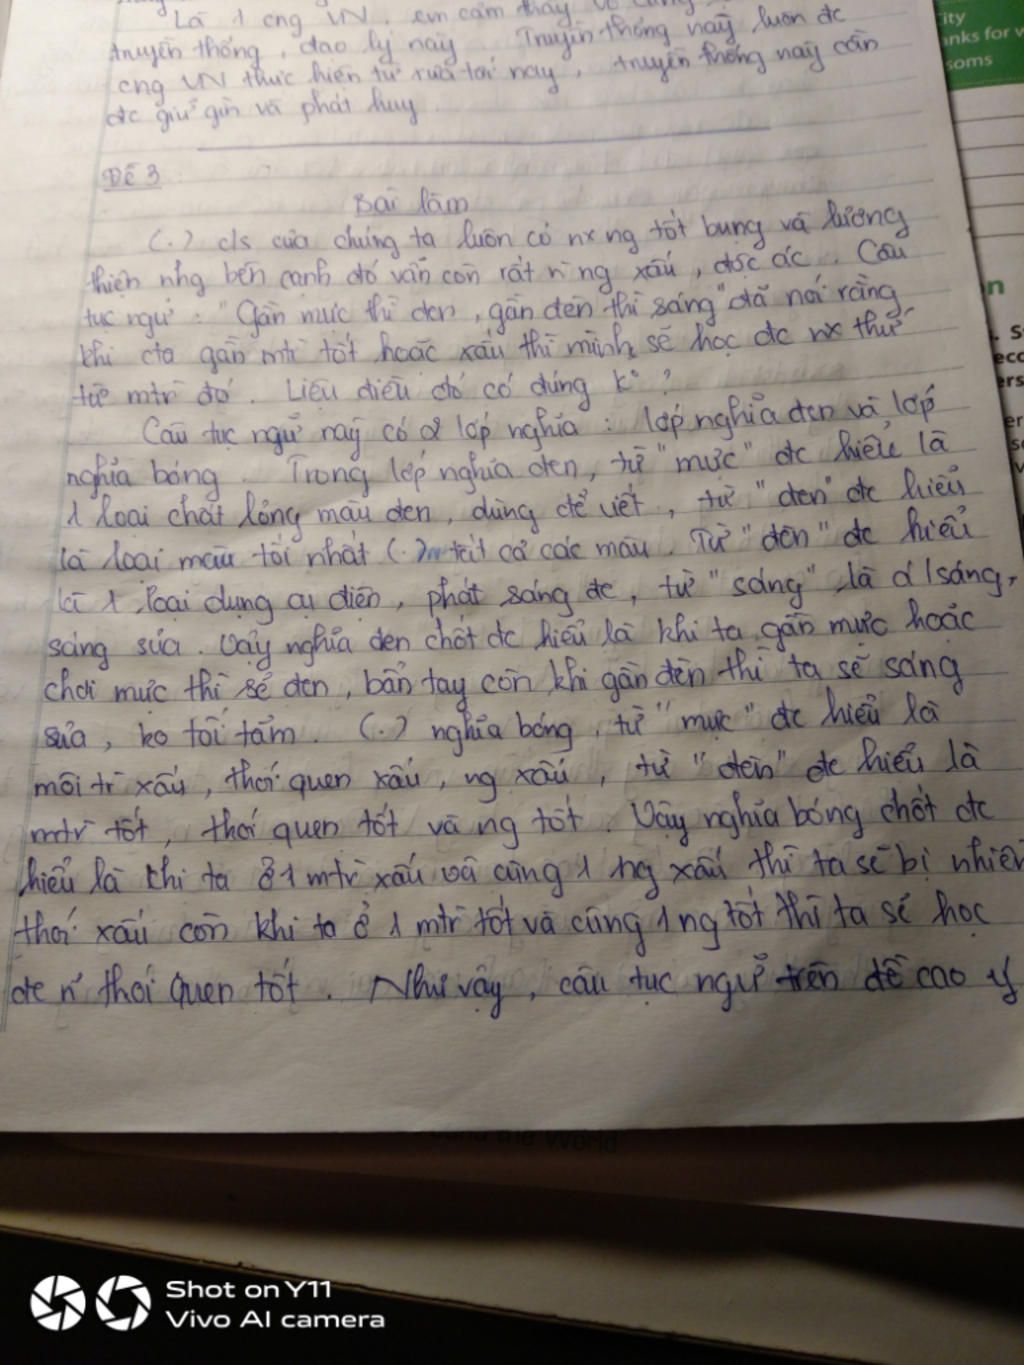 Là 1 cng VN, em cảm thấy vô cùng
truyền thống, đạo lý này. Truyền thống này luôn đc
cng VN thực hiện từ xưa tới nay, truyền thống này cần
đc giữ gìn và phát huy.
Đề 3
Bài làm
(.) c/s của chúng ta luôn có nx ng tốt bụng và lương
thiện nhg bên cạnh đó vẫn còn rất n` ng xấu, độc ác. Câu
tục ngữ: "Gần mực thì đen, gần đèn thì sáng" đã nói rằng
khi cta gần mtr tốt hoặc xấu thì mình sẽ học đc nx thứ
từ mtr đó. Liệu điều đó có đúng k°?
Câu tục ngữ này có 2 lớp nghĩa: lớp nghĩa đen và lớp
nghĩa bóng. Trong lớp nghĩa đen, từ "mực" đc hiểu là
1 loại chất lỏng màu đen, dùng để viết, từ "đen" đc hiểu
là loại màu tối nhất (.) tất cả các màu. Từ "đèn" đc hiểu
là 1 loại dụng cụ điện, phát sáng đc, từ "sáng" là sáng,
sáng sủa. Vậy nghĩa đen chốt đc hiểu là khi ta gần mực hoặc
chơi mực thì sẽ đen, bẩn tay còn khi gần đèn thì ta sẽ sáng
sủa, ko tối tăm. (.) nghĩa bóng, từ "mực" đc hiểu là
môi tr xấu, thói quen xấu, ng xấu, từ "đèn" đc hiểu là
mtr tốt, thói quen tốt và ng tốt. Vậy nghĩa bóng chốt đc
hiểu là khi ta ở 1 mtr xấu và cùng 1 ng xấu thì ta sẽ bị nhiễm
thói xấu còn khi ta ở 1 mtr tốt và cùng 1 ng tốt thì ta sẽ học
đc n~ thói quen tốt. Như vậy, câu tục ngữ trên đề cao ý
ity
nks for w
soms
n
. S
eco
ers
er
so
w
around the World
Shot on Y11
Vivo AI camera